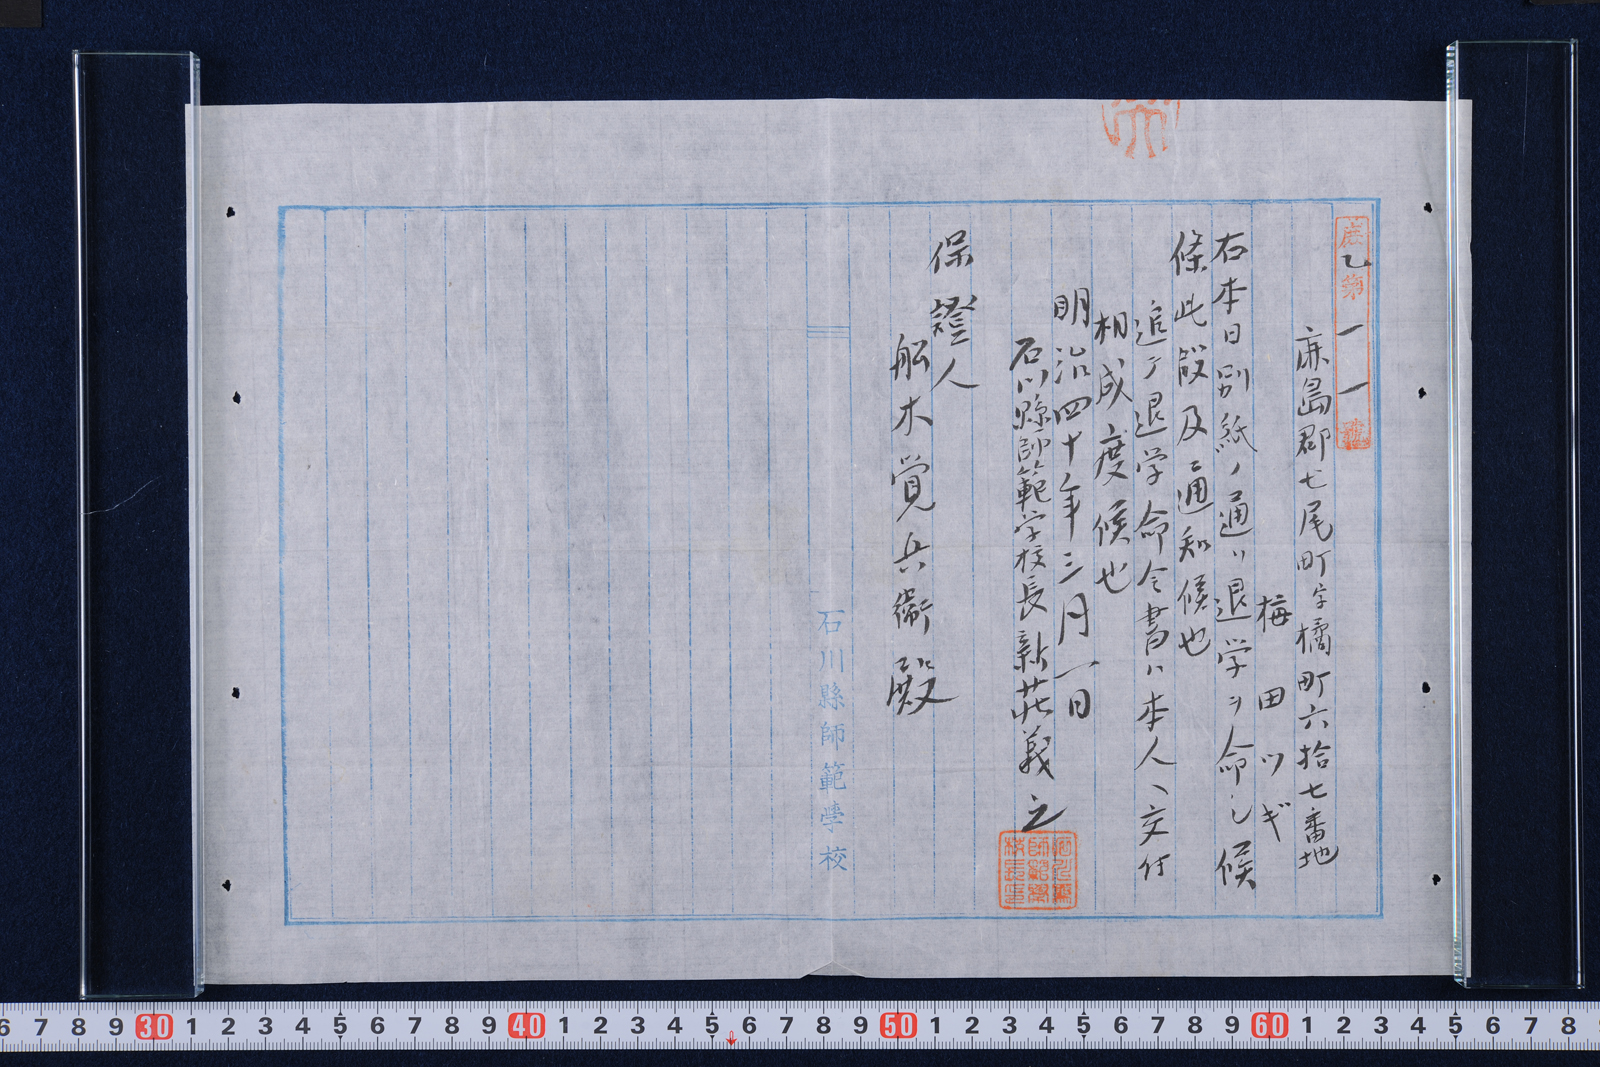 庶乙第一一號
鹿島郡七尾町字橘町六拾七番地
梅田ツギ
右本日別紙ノ通リ退学ヲ命じ候
條此段及通知候也
追テ退学命令書ハ本人ヘ交付
相成度候也
明治四十年三月一日
石川縣師範学校長新荘義之
石川縣師範學校長印
保證人
舩木覚兵衛殿
石川縣師範學校
6 7 8 9 30 1 2 3 4 5 6 7 8 9 40 1 2 3 4 5 6 7 8 9 50 1 2 3 4 5 6 7 8 9 60 1 2 3 4 5 6 7 8